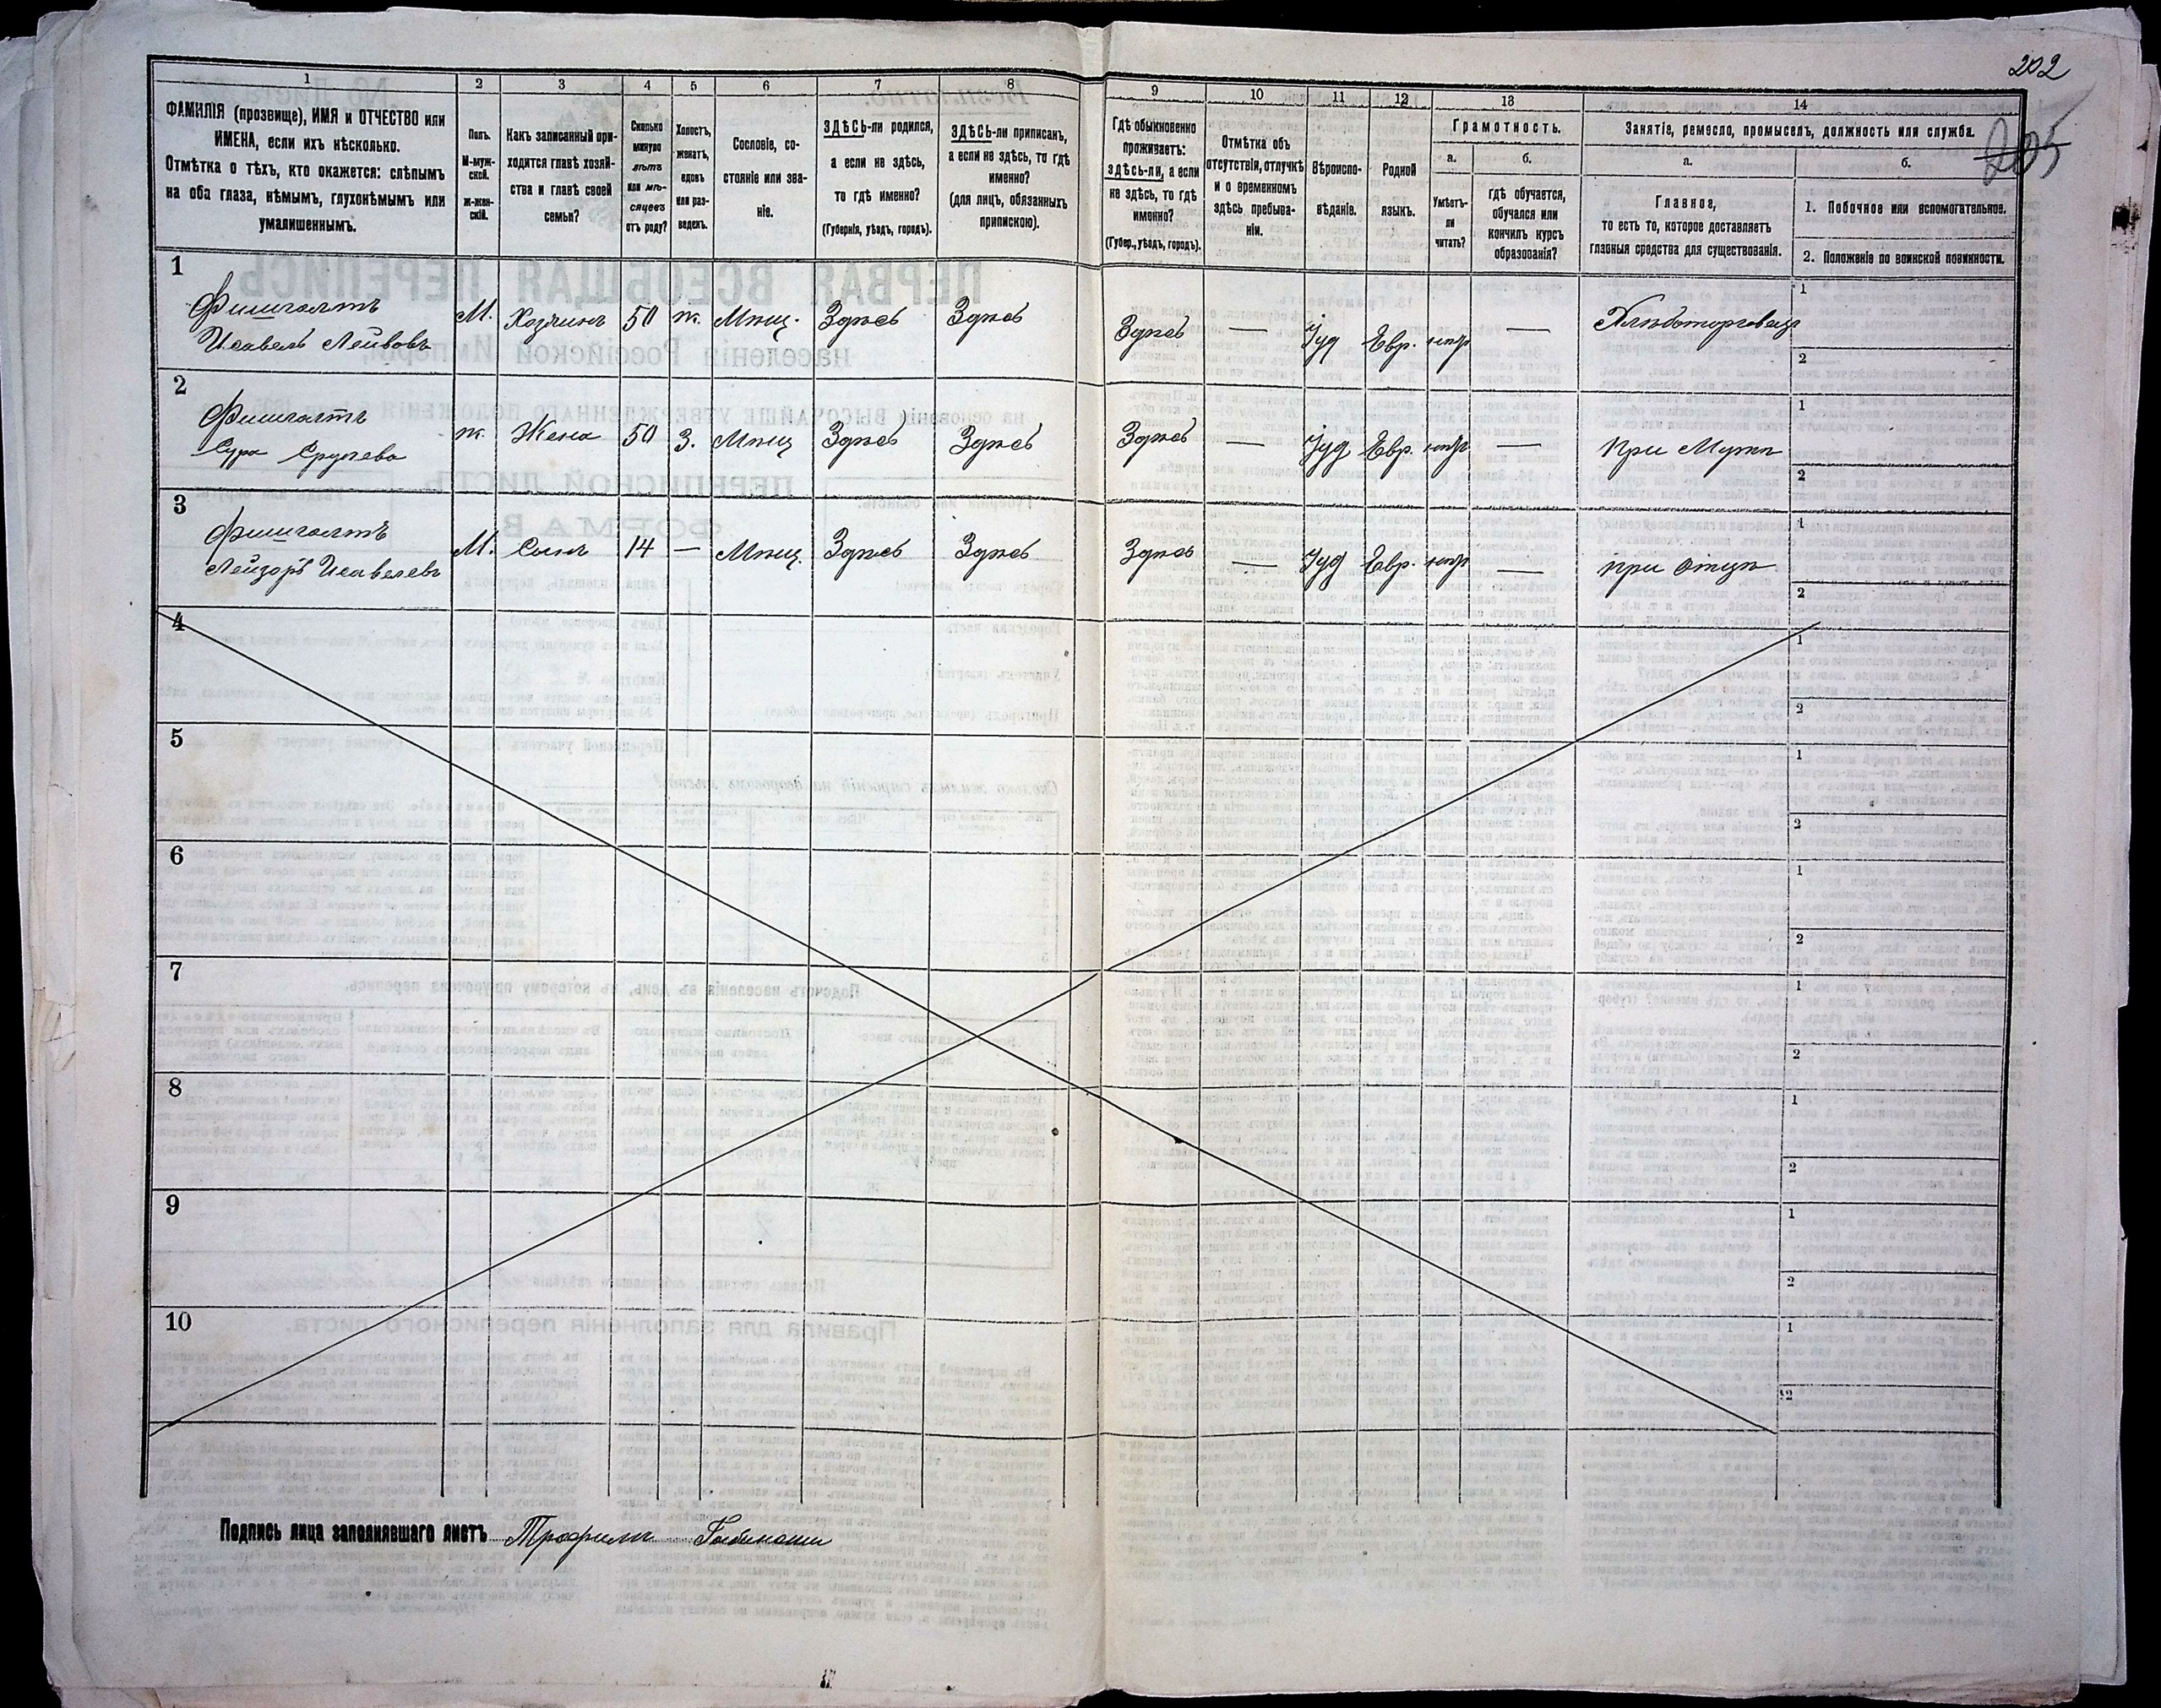 202
205
1
2
3
4
5
6
7
8
9
10
11
12
13
14
ФАМИЛІЯ (прозвище), ИМЯ и ОТЧЕСТВО или
ИМЕНА, если ихъ нѣсколько.
Отмѣтка о тѣхъ, кто окажется: слѣпымъ
на оба глаза, нѣмымъ, глухонѣмымъ или
умалишеннымъ.
Полъ.
М-муж-
ской.
ж-жен-
скій.
Какъ записанный при-
ходится главѣ хозяй-
ства и главѣ своей
семьи?
Сколько
минуло
лѣтъ
или мѣ-
сяцевъ
отъ роду?
Холостъ,
женатъ,
вдовъ
или раз-
веденъ.
Сословіе, со-
стояніе или зва-
ніе.
ЗДѢСЬ-ли родился,
а если не здѣсь,
то гдѣ именно?
(Губернія, уѣздъ, городъ).
ЗДѢСЬ-ли приписанъ,
а если не здѣсь, то гдѣ
именно?
(для лицъ, обязанныхъ
припискою).
Гдѣ обыкновенно
проживаетъ:
здѣсь-ли, а если
не здѣсь, то гдѣ
именно?
(Губер., уѣздъ, городъ).
Отмѣтка объ
отсутствіи, отлучкѣ
и о временномъ
здѣсь пребыва-
ніи.
Вѣроиспо-
вѣданіе.
Родной
языкъ.
Грамотность.
а.
б.
Умѣетъ-
ли
читать?
гдѣ обучается,
обучался или
кончилъ курсъ
образованія?
Занятіе, ремесло, промыселъ, должность или служба.
а.
б.
Главное,
то есть то, которое доставляетъ
главныя средства для существованія.
1. Побочное или вспомогательное.
2. Положеніе по воинской повинности.
1
Фишгалтъ
Исавель Лейвовъ
М.
Хозяинъ
50
ж.
Мѣщ.
Здѣсь
Здѣсь
Здѣсь
—
Іуд
Евр.
нѣтъ
—
Хлѣботорговецъ
1
2
2
Фишгалтъ
Сура Срулева
ж.
Жена
50
З.
Мѣщ
Здѣсь
Здѣсь
Здѣсь
—
Іуд
Евр.
нѣтъ
—
при Мужѣ
1
2
3
Фишгалтъ
Лейзоръ Исавелевъ
М.
Сынъ
14
—
Мѣщ.
Здѣсь
Здѣсь
Здѣсь
—
Іуд
Евр.
нѣтъ
—
при отцѣ
1
2
4
1
2
5
1
2
6
1
2
7
1
2
8
1
2
9
1
2
10
1
2
Подпись лица заполнявшаго листъ Трофимъ